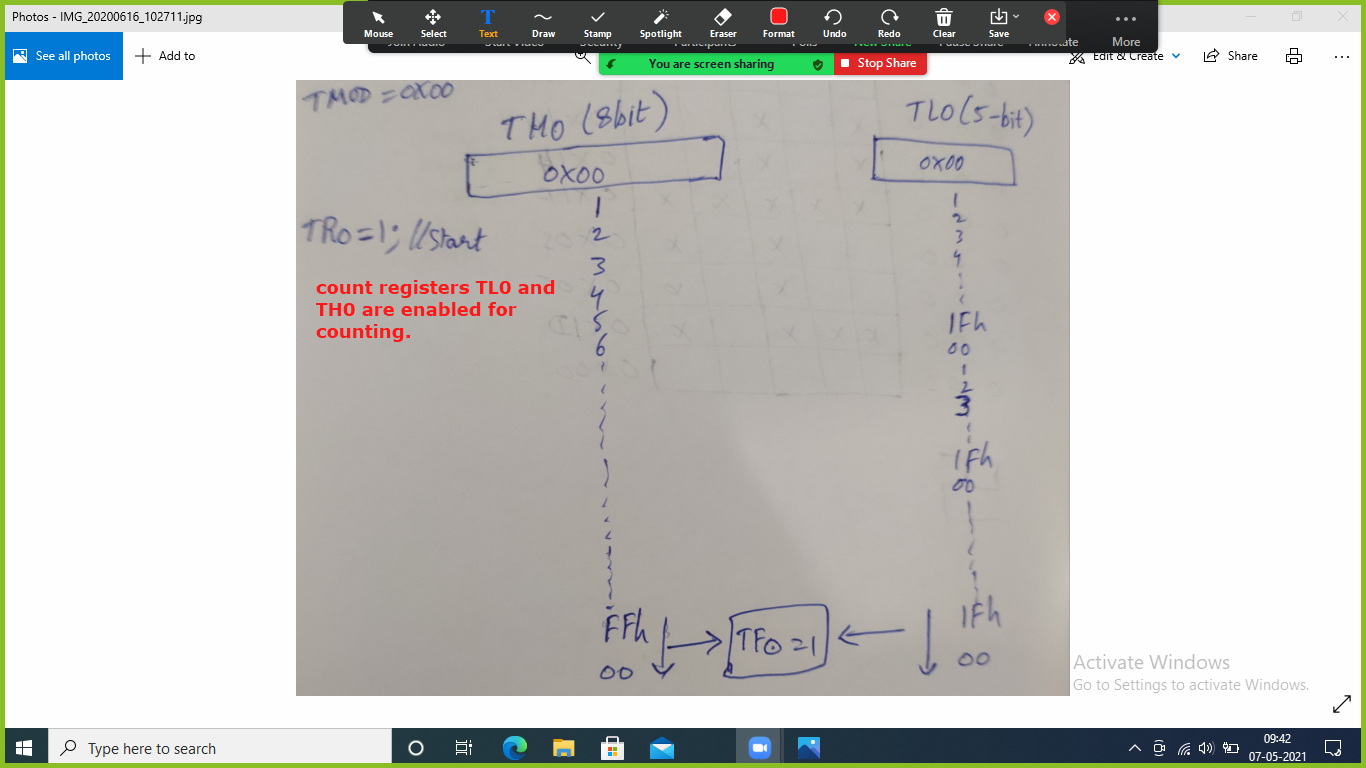 Photos - IMG_20200616_102711.jpg
Mouse Select Text Draw Stamp Spotlight Eraser Format Undo Redo Clear Save More
Join Audio Start Video Security Participants Polls New Share Pause Share Annotate
See all photos Add to Edit & Create Share
You are screen sharing Stop Share
TMOD = 0X00
TH0 (8bit) TL0 (5-bit)
0X00 0X00
TR0 = 1; //Start
count registers TL0 and
TH0 are enabled for
counting.
1
2
3
4
5
6
FFh
00
1
2
3
4
1Fh
00
1
2
3
1Fh
00
1Fh
00
TF0 = 1
Activate Windows
Go to Settings to activate Windows.
Type here to search
09:42
07-05-2021